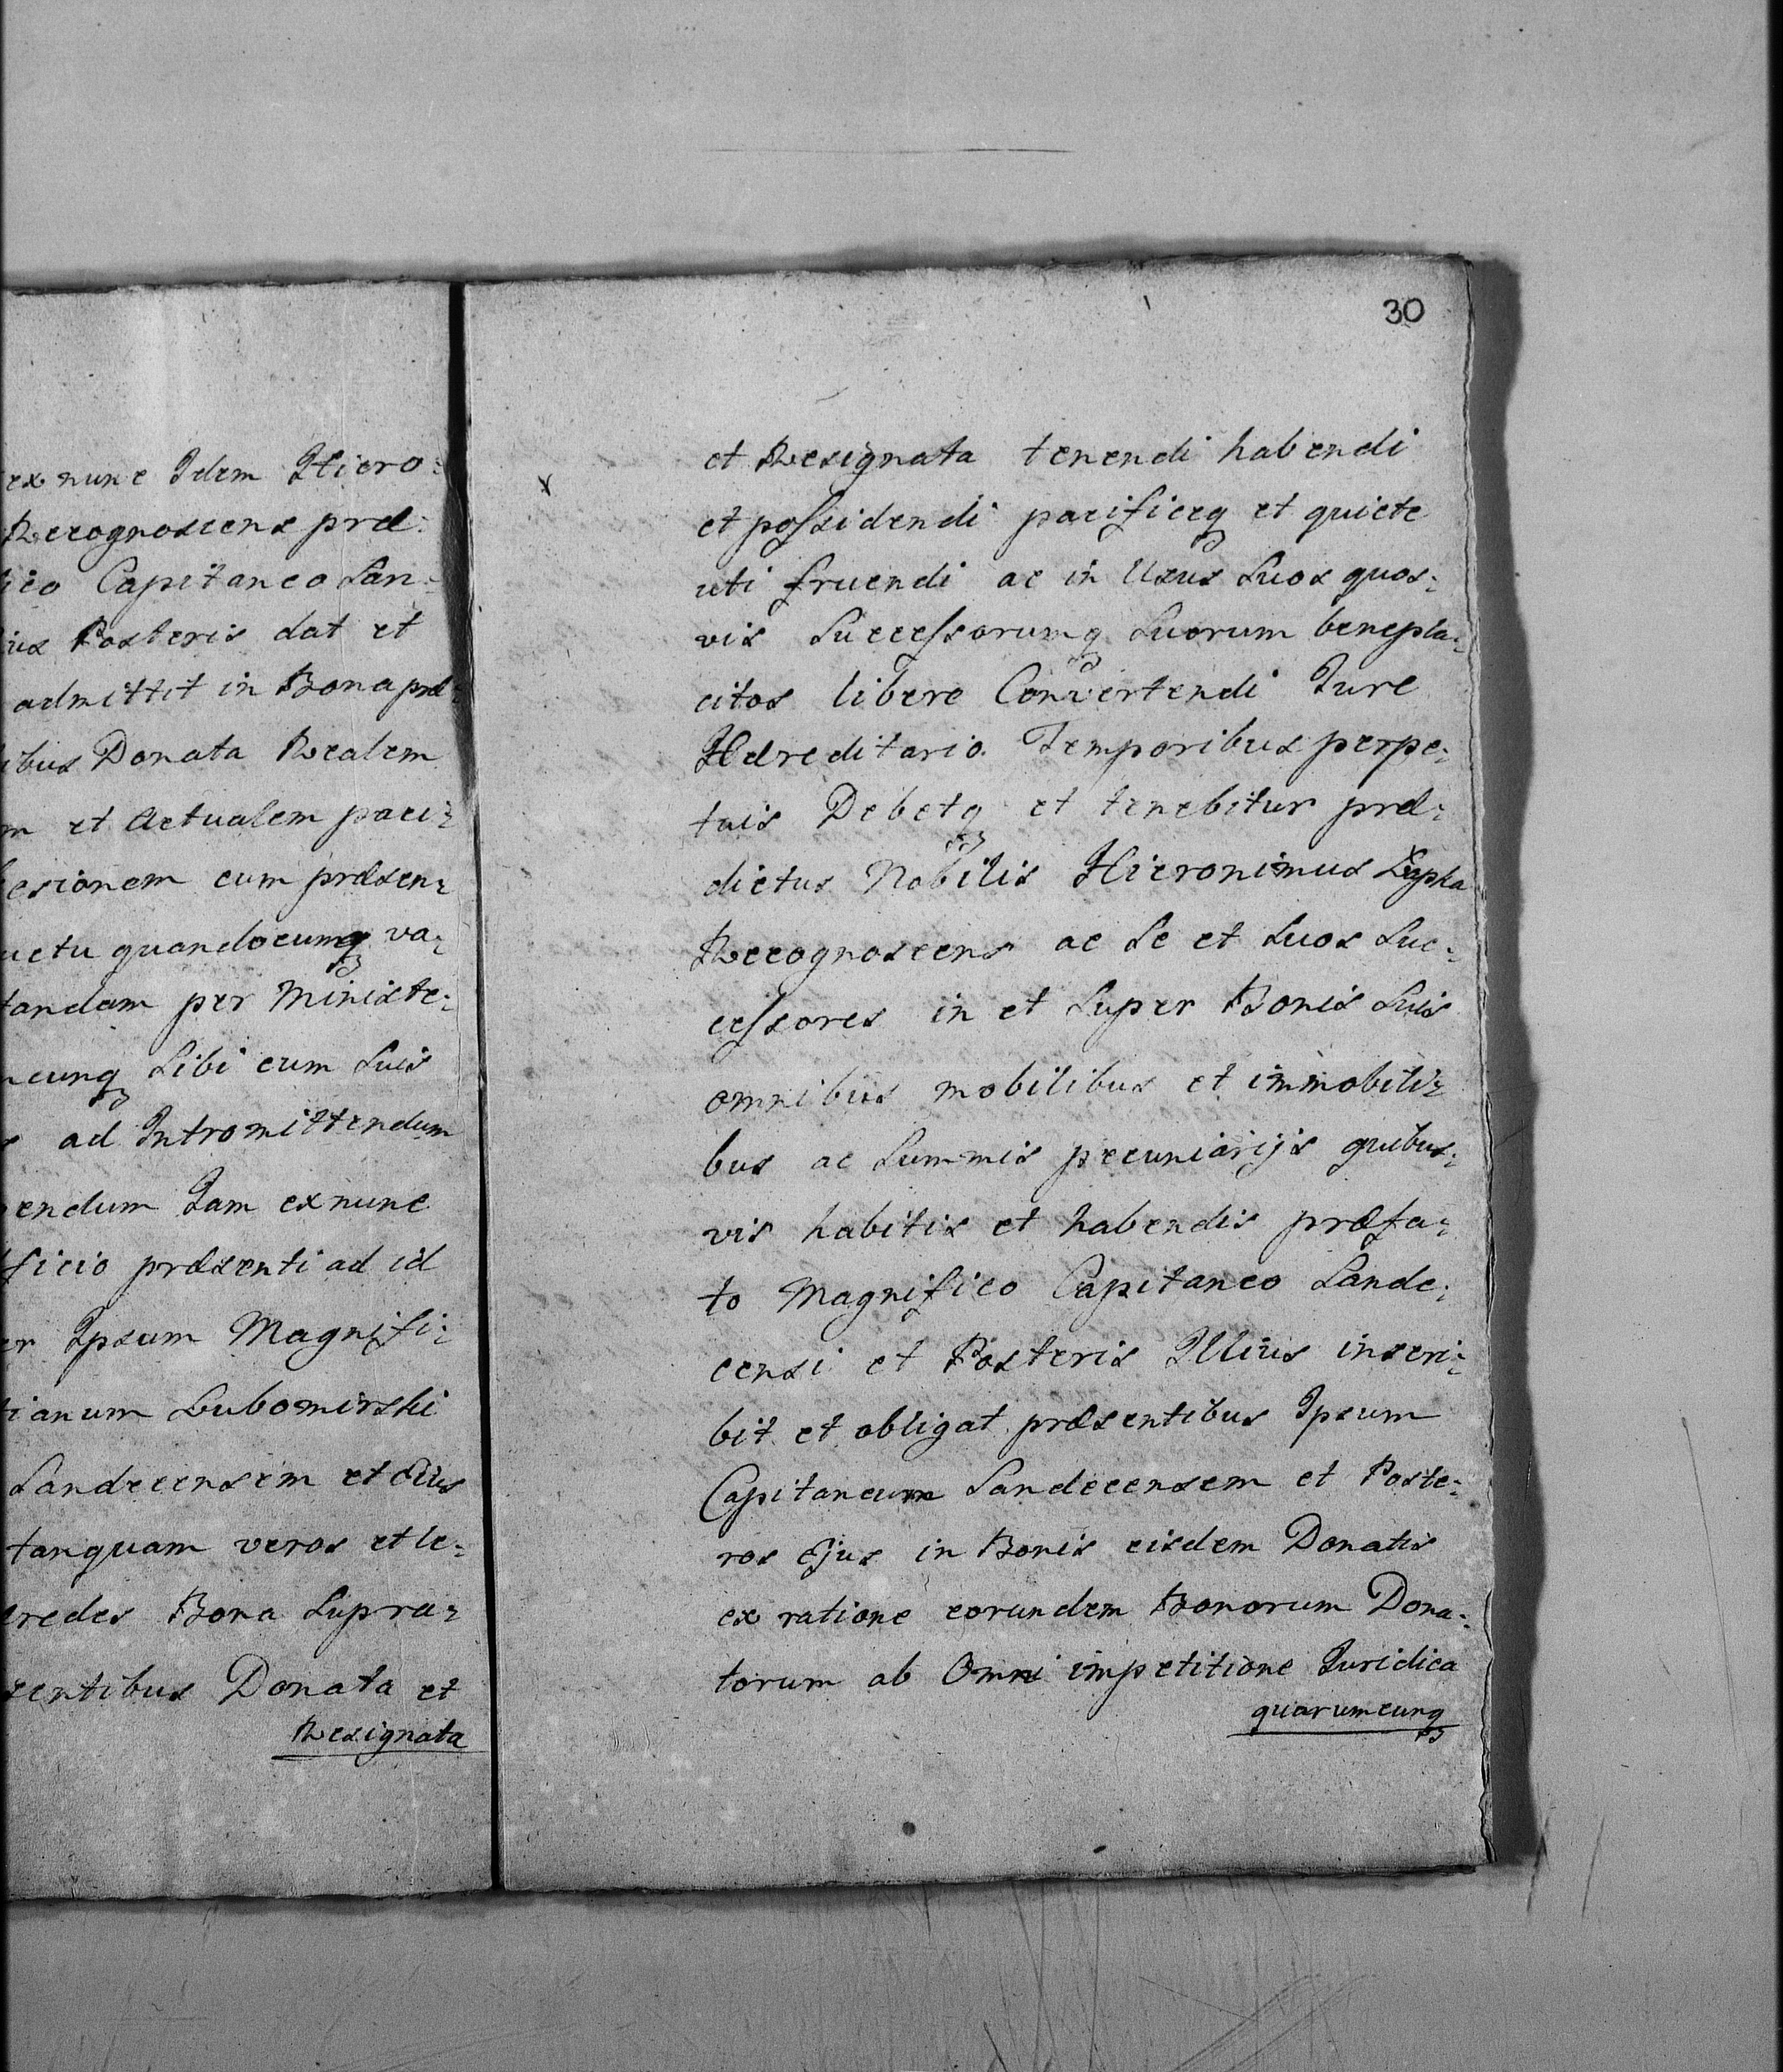 ex nunc Idem Hiero:
Recognoscens præ:
Capitaneo San:
Posteris dat et
admittit in Bona præ:
Donata Realem
et Actualem paci:
cum præsen:
quandocunq va:
per Ministe:
Sibi cum Suis
ad Intromittendum
Jam ex nunc
præsenti ad id
Ipsum Magnifi:
Lubomirski
Sandecensem et Eius
tanquam veros et le:
Bona Supra:
Donata et
Resignata
30
et Resignata tenendi habendi
et possidendi pacificeq et quiete
uti fruendi ac in Usus Suos quos:
vis Successorumq Suorum benepla:
citos libere Convertendi Jure
Hæreditario Temporibus perpe:
tuis Debetq et tenebitur præ:
dictus Nobilis Hieronimus
Recognoscens ac Se et Suos Suc:
cessores in et Super Bonis Suis
omnibus mobilibus et immobili:
bus ac Summis pecuniarijs quibus:
vis habitis et habendis præfa:
to Magnifico Capitaneo Sande:
censi et Posteris Illius inscri:
bit et obligat præsentibus Ipsum
Capitaneum Sandecensem et Poste:
ros Ejus in Bonis eisdem Donatis
ex ratione eorundem Bonorum Dona:
torum ab Omni impetitione Juridica
quarumcunq